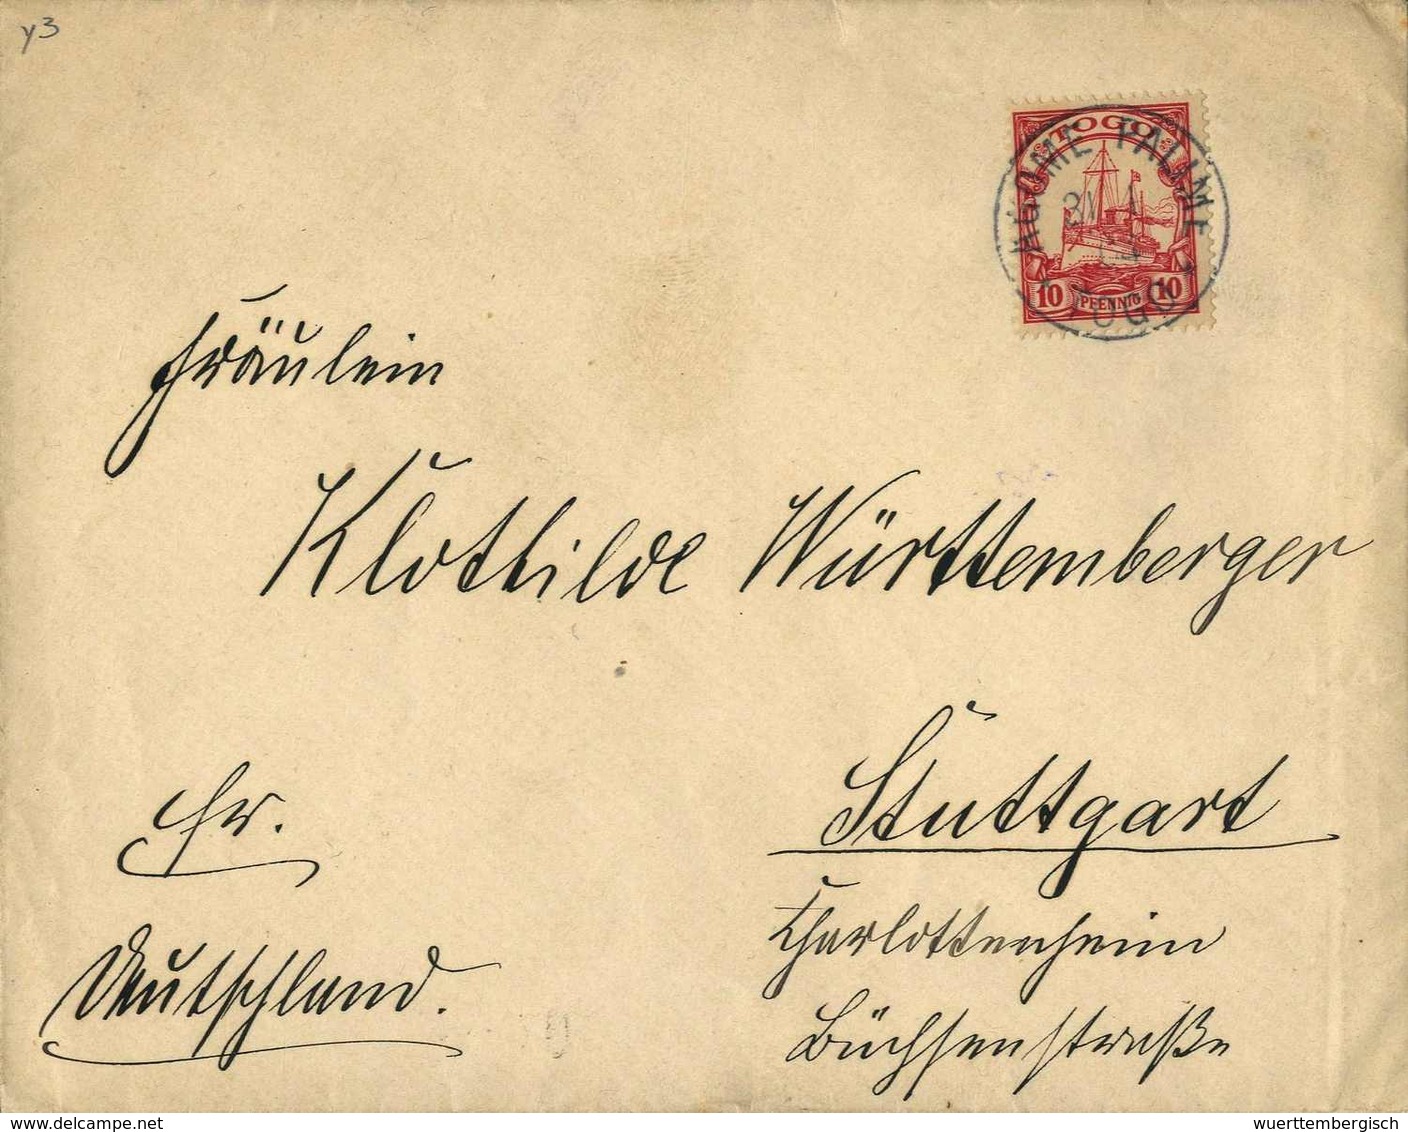 y3
TOGO
AGOME PALIME
TOGO
10 PFENNIG 10
Fräulein
Klothilde Württemberger
Stuttgart
Charlottenheim
Büchsenstraße
Hr.
Deutschland.
www.delcampe.net
wuerttembergisch